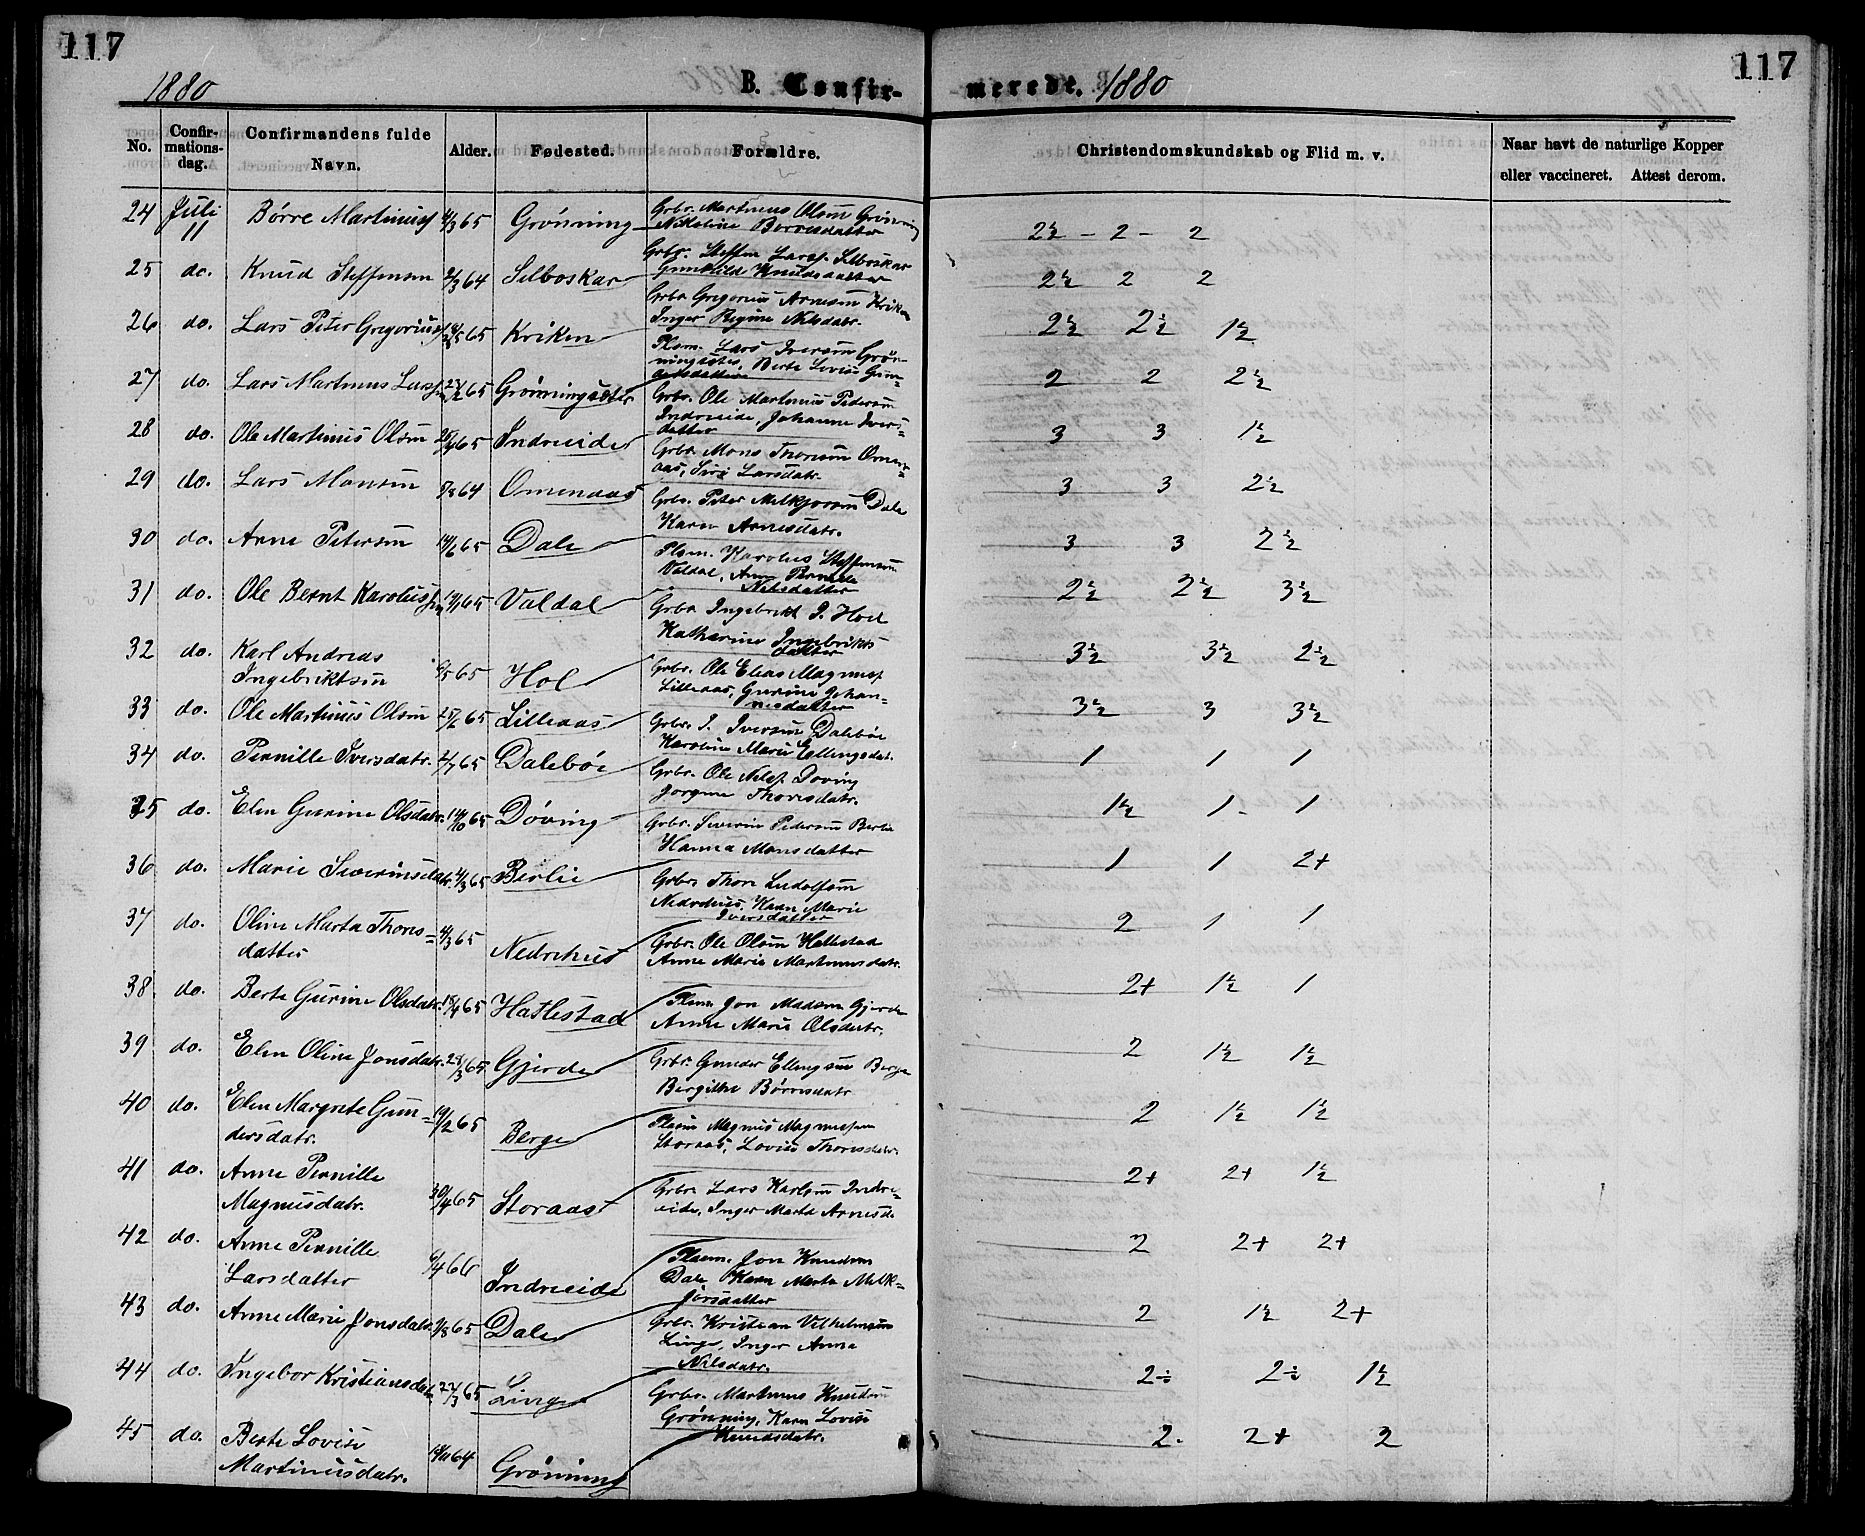 117
117
1880
B. Confir-
merede. 1880
No.
Confir-
mations-
dag.
Confirmandens fulde
Navn.
Alder.
Fødested.
Forældre.
Christendomskundskab og Flid m. v.
Naar havt de naturlige Kopper
eller vaccineret. Attest derom.
24 Juli 11 Børre Martinus 65 Grønning
Grbr. Martinus Olsen Grønning
Nikoline Børresdatter
2½ - 2 - 2
25 do. Knud Steffensen 64 Selboskar
Grbr. Steffen Larss. Selboskar
Gunhild Knudsdatter
2½ 2 2
26 do. Lars Peter Gregorius 65 Kriken
Grbr Gregorius Arnesen Kriken
Inger Regine Nilsdatr.
2½ 2½ 1½
27 do. Lars Martinus Larss 65 Grønningsæter
Plsm. Lars Iversen Grøn-
ningsæter, Berte Lovise Gun-
dersdatter
2 2 2½
28 do. Ole Martinus Olsen 65 Indreeide
Grbr. Ole Martinus Pedersen
Indreeide, Johanne Ivers-
datter
3 3 1½
29 do. Lars Monsen 64 Omenaas
Grbr. Mons Thoresen Omen-
aas, Siri Larsdatr.
3 3 2½
30 do. Arne Petersen 14/6 65 Dale
Grbr. Peter Melkjorsen Dale
Karen Arnesdatr.
3 3 2½
31 do. Ole Bernt Karolus 65 Valdal
Plsm. Karolus Steffensen
Valdal, Anne Pernille
Nilsdatter
2½ 2½ 3½
32 do. Karl Andreas
Ingebriktsen 65 Hol
Grbr Ingebrikt I. Hol
Katharine Ingebrikts
datter
3½ 3½ 2½
33 do. Ole Martinus Olsen 25/2 65 Lilleaas
Grbr. Ole Elias Magnuss
Lilleaas, Gurine Johan-
nesdatter
3½ 3 3½
34 do. Pernille Iversdatr. 65 Dalebøe
Grbr. I. Iversen Dalebøe
Karoline Marie Ellingsdat.
1 1 1
35 do. Elen Gurine Olsdatr. 14/10 65 Døving
Grbr. Ole Nilss. Døving
Jørgine Thoresdatr.
1½ 1 - 1
36 do. Marie Severinsdatr. 4/3 65 Berlie
Grbr. Severin Pedersen Berlie
Hanna Monsdatter
1 1 2+
37 do. Oline Marta Thores-
datter 4/3 65 Nedrehus
Grbr. Thore Ludolfsen
Nedrehus, Karen Marie
Iversdatter
2 1 1
38 do. Berte Gurine Olsdatr. 18/4 65 Hatlestad
Grbr. Ole Olsen Hatlestad
Anne Marie Martinusdatr.
2+ 1½ 1
39 do. Elen Oline Jonsdatr. 28/3 65 Gjerde
Plsm. Jon Madsen Gjerde
Anne Marie Olsdatr.
2 1½ 1½
40 do. Elen Margrete Gun-
dersdatr. 19/2 65 Berge
Grbr. Gunder Ellingsen Berge
Bergithe Børresdatr
2 1½ 1½
41 do. Anne Pernille
Magnusdatr. 30/4 65 Storaas
Plsm Magnus Magnussen
Storaas, Lovise Thoresdatr.
2+ 2+ 1½
42 do. Anne Pernille
Larsdatter 6/4 66 Indreeide
Grbr. Lars Karlsen Indre-
eide, Inger Marta Arnesd.
2 2+ 2+
43 do. Anne Marie Jonsdatr. 65 Dale
Plsm. Jon Knudsen
Dale, Karen Marta Melk-
jorsdatter
2 1½ 2+
44 do. Ingebor Kristiansdatr. 27/3 65 Linge
Grbr. Kristian Vilhelmsen
Linge, Inger Anna
Nilsdatr.
2÷ 2÷ 1½
45 do. Berte Lovise
Martinusdatr. 64 Grønning
Grbr. Martinus Knudsen
Grønning, Karen Lovise
Knudsdatr.
2. 2+ 2